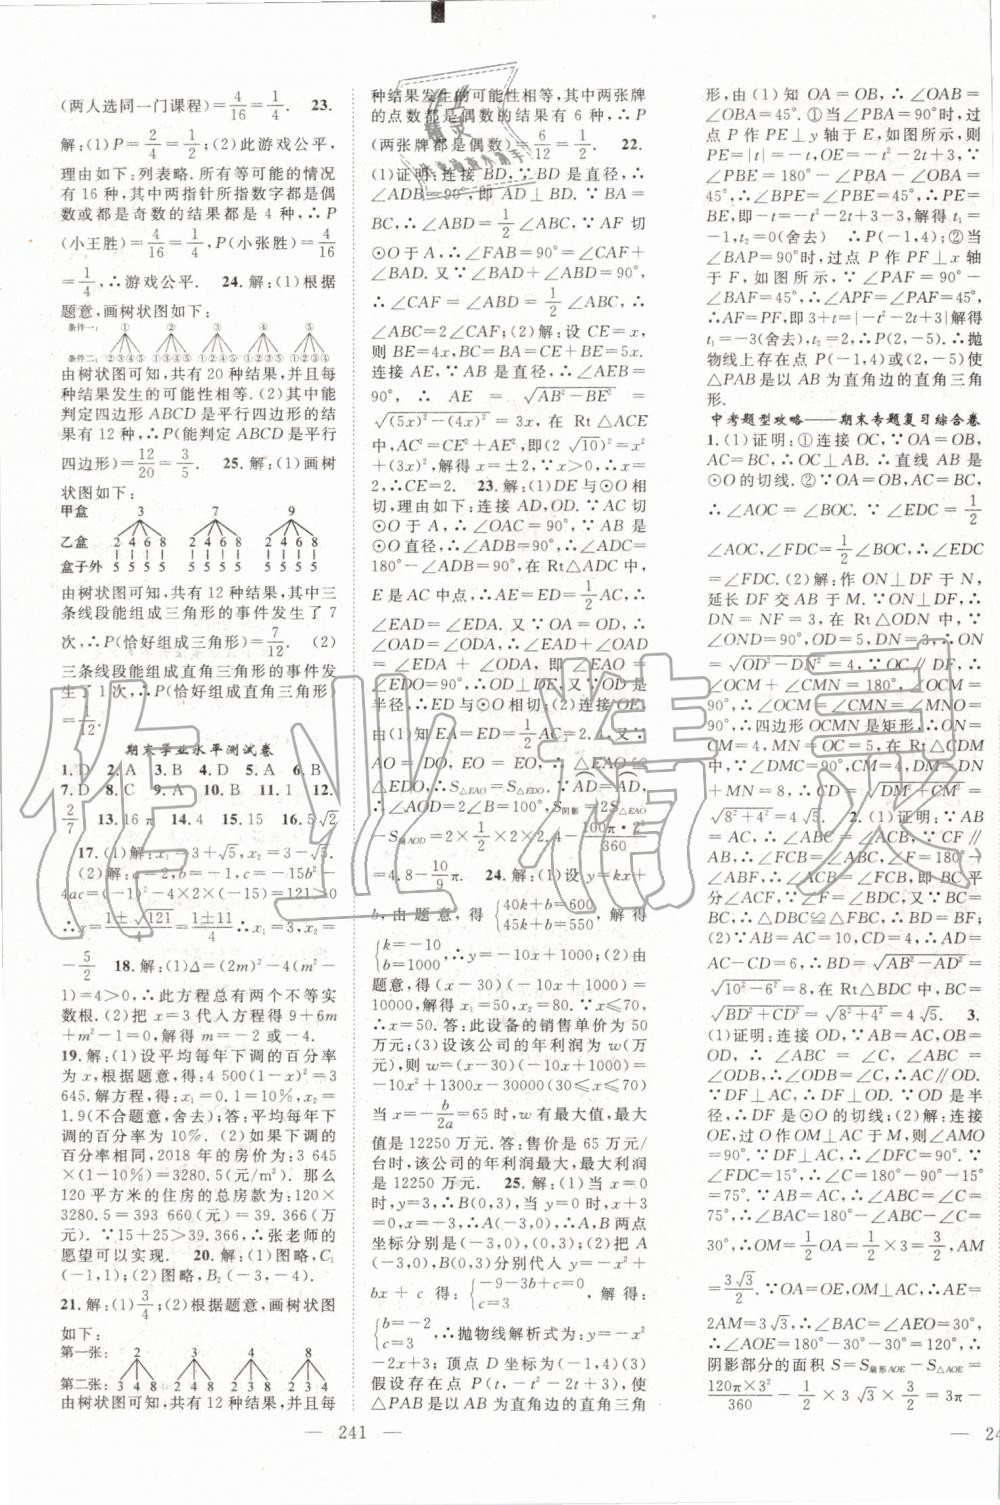 (两人选同一门课程)=4/16=1/4. 23.
解:(1)P=2/4=1/2;(2)此游戏公平,
理由如下:列表略.所有等可能的情况
有 16 种,其中两指针所指数字都是偶
数或都是奇数的结果都是 4 种,∴P
(小王胜)=4/16=1/4,P(小张胜)=4/16
=1/4,∴游戏公平. 24.解:(1)根据
题意,画树状图如下:
条件一: ① ② ③ ④ ⑤
条件二:②③④⑤ ①③④⑤ ①②④⑤ ①②③⑤ ①②③④
由树状图可知,共有 20 种结果,并且每
种结果发生的可能性相等.(2)其中能
判定四边形 ABCD 是平行四边形的结
果有 12 种,∴P(能判定 ABCD 是平行
四边形)=12/20=3/5. 25.解:(1)画树
状图如下:
甲盒 3 7 9
乙盒 2 4 6 8 2 4 6 8 2 4 6 8
盒子外 5 5 5 5 5 5 5 5 5 5 5 5
由树状图可知,共有 12 种结果,其中三
条线段能组成三角形的事件发生了 7
次,∴P(恰好组成三角形)=7/12. (2)
三条线段能组成直角三角形的事件发
生了 1 次,∴P(恰好组成直角三角形)
=1/12.
期末学业水平测试卷
1.D 2.A 3.B 4.D 5.A 6.B
7.D 8.C 9.A 10.B 11.1 12.
2/7 13.16π 14.4 15.15 16.5√2
17.(1)解:x₁=3+√5,x₂=3-√5.
(2)解:a=2,b=-1,c=-15b²-
4ac=(-1)²-4×2×(-15)=121>0
∴x=(1±√121)/4=(1±11)/4∴x₁=3,x₂=
-5/2 18.解:(1)Δ=(2m)²-4(m²-
1)=4>0,∴此方程总有两个不等实
数根.(2)把 x=3 代入方程得 9+6m
+m²-1=0,解得 m=-2 或 m=-4.
19.解:(1)设平均每年下调的百分率
为 x,根据题意,得:4 500(1-x)²=3
645.解方程得:x₁=0.1=10%,x₂=
1.9(不合题意,舍去);答:平均每年下
调的百分率为 10%.(2)如果下调的
百分率相同,2018 年的房价为:3 645
×(1-10%)=3280.5(元/m²). 那么
120 平方米的住房的总房款为:120×
3280.5=393 660(元)=39.366(万
元).∵15+25>39.366,∴张老师的
愿望可以实现. 20.解:(1)图略,C₁
(-1,-1);(2)图略,B₂(-3,-1).
21.解:(1)3/4;(2)根据题意,画树状图
如下:
第一张: 2 3 4 8
第二张: 3 4 8 2 4 8 2 3 8 2 3 4
由树状图可知,共有 12 种结果,并且每
种结果发生的可能性相等,其中两张牌
的点数都是偶数的结果有 6 种,∴P
(两张牌都是偶数)=6/12=1/2. 22.
(1)证明:连接 BD,∵AB 是直径,∴
∠ADB=90°,即 AD⊥BD.∵BA=
BC,∴∠ABD=1/2∠ABC,∵AF 切
⊙O 于 A,∴∠FAB=90°=∠CAF+
∠BAD.又∵∠BAD+∠ABD=90°,
∴∠CAF=∠ABD=1/2∠ABC,∴
∠ABC=2∠CAF;(2)解:设 CE=x,
则 BE=4x,BC=BE+CE=AB=5x.
连接 AE,∵AB 是直径,∴∠AEB=
90°,∴AE=√(AB²-BE²)=
√((5x)²-(4x)²)=3x,在 Rt△ACE
中,AC²=CE²+AE²,即(2√10)²=x²
+(3x)²,解得 x=±2,∵x>0,∴x=
2,∴CE=2. 23.解:(1)DE 与⊙O 相
切,理由如下:连接 AD,OD.∵AC 切
⊙O 于 A,∴∠OAC=90°,∵AB 是
⊙O 直径,∴∠ADB=90°,∴∠ADC=
180°-∠ADB=90°,在 Rt△ADC 中,
E 是 AC 中点,∴AE=ED=1/2AC,∴
∠EAD=∠EDA.又∵OA=OD,∴
∠OAD=∠ODA,∴∠OAD+∠EAD
=∠EDA+∠ODA,即∠EAO=
∠EDO=90°,∴ED⊥OD,又∵OD 是半
径,∴ED 与⊙O 相切;(2)连接 OE,
由(1)知 EA=ED=1/2AC=2.4,又∵
AO=DO,EO=EO,∴△EAO≌
△EDO,∴S△EAO=S△EDO,∵AD=AD,
∴∠AOD=2∠B=100°,S阴影=2S△EAO
-S扇AOD=2×1/2×2×2.4-100π·2²/360
=4.8-10/9π. 24.解:(1)设 y=kx+
b,由题意,得{40k+b=600 45k+b=550,解得
{k=-10 b=1000,∴y=-10x+1000;(2)由
题意,得(x-30)(-10x+1000)=
10000,解得 x₁=50,x₂=80.∵x≤70,
∴x=50.答:此设备的销售单价为 50
万元;(3)设该公司的年利润为 w(万
元),则 w=(x-30)(-10x+1000)=
-10x²+1300x-30000(30≤x≤70)
当 x=-b/2a=65 时,w 有最大值,最大
值是 12250 万元.答:售价是 65 万元/
台时,该公司的年利润最大,最大利润
是 12250 万元. 25.解:(1)当 x=0
时,y=3,∴B(0,3),当 y=0 时,x+3
=0,∴x=-3,∴A(-3,0),∴A,B 两点
坐标分别是(-3,0),(0,3);(2)把 A
(-3,0),B(0,3)分别代入 y=-x²+
bx+c 得:{-9-3b+c=0 c=3,解得:
{b=-2 c=3,∴抛物线解析式为:y=-x²
-2x+3;顶点 D 坐标为(-1,4)(3)
假设存在点 P(t,-t²-2t+3),使
△PAB 是以 AB 为直角边的直角三角
形,由(1)知 OA=OB,∴∠OAB=
∠OBA=45°①当∠ABP=90°时,过
点 P 作 PE⊥y 轴于 E,如图所示,则
PE=|t|=-t,∵∠PEB=90°,
∠PBE=180°-∠PBA-∠ABO=
45°,∴∠BPE=∠PBE=45°,∴PE=
BE,即-t=-t²-2t+3-3,解得 t₁
=-1,t₂=0(舍去) ∴P(-1,4);②当
∠BAP=90°时,过点 P 作 PF⊥x 轴
于 F,如图所示,∵∠PAF=90°-
∠BAF=45°,∴∠APF=∠PAF=
45°,∴PF=AF,即 3+t=t²+2t-3,解得
t₁=-3(舍去),t₂=2,∴P(2,-5),∴抛
物线上存在点 P(-1,4)或(2,-5)使
△PAB 是以 AB 为直角边的直角三角
形.
中考题型攻略——期末专题复习综合卷
1.(1)证明:①连接 OC,∵OA=OB,
AC=BC,∴OC⊥AB,∴直线 AB 是
⊙O 的切线.②∵OA=OB,AC=BC,
∴∠AOC=∠BOC.∵∠EDC=1/2
∠AOC,∠FDC=1/2∠BOC,∴∠EDC
=∠FDC.(2)解:作 ON⊥DF 于 N,
延长 DF 交 AB 于 M.∵ON⊥DF,∴
DN=NF=3,在 Rt△ODN 中,∵
∠OND=90°,OD=5,DN=3,∴ON
=√(OD²-DN²)=4,∵OC∥DF,∴
∠OCM+∠CMN=180°,∠OCM=
90°,∴∠OCM=∠CMN=∠MNO=
90°,∴四边形 OCMN 是矩形,∴ON=
CM=4,MN=OC=5,在 Rt△CDM
中,∵∠DMC=90°,CM=4,DM=DN
+MN=8,∴CD=√(DM²+CM²)=
√(8²+4²)=4√5. 2.(1)证明:∵AB=
AC,∴∠FCB=∠ABC,∵CF∥
AB,∴∠ABC+∠F=180°,∴∠F=180°-
∠ABC=180°-∠FCB,即 BC 平
分∠ACF,∴△DBC≌△FBC,∴BD=BF;
(2)∵AB=AC=10,CD=4,∴AD=
10-4=6.∴BD=√(AB²-AD²)=
√(10²-6²)=8,在 Rt△BDC 中,BC=
√(BD²+CD²)=√(8²+4²)=4√5. 3.
(1)证明:连接 OD.∵AB=AC,OB=
OD,∴∠ABC=∠C,∠ABC=
∠ODB,∴∠ODB=∠C,∴AC∥OD.
∵DF⊥AC,∴DF⊥OD.∵OD 是半
径,∴DF 是⊙O 的切线;(2)解:连接
OE,过 O 作 OM⊥AC 于 M,则∠AMO
=90°.∵DF⊥AC,∴∠DFC=90°.
∵∠FDC=15°,∴∠C=180°-90°-15°
=75°.∵AB=AC,∴∠ABC=∠C=
75°,∴∠BAC=180°-∠ABC-∠C=
30°,∴OM=1/2OA=1/2×3=3/2,AM
=3√3/2.∵OA=OE,OM⊥AC,∴AE=
2AM=3√3,∴∠BAC=∠AEO=30°,
∴∠AOE=180°-30°-30°=120°,∴
阴影部分的面积 S=S扇形AOE-S△AOE=
120π×3²/360-1/2×3√3×3/2=3π-
— 241 —